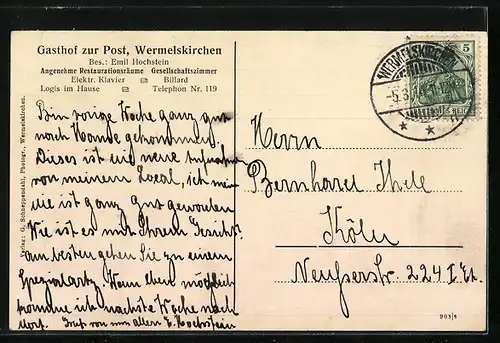 Gasthof zur Post, Wermelskirchen
Bes.: Emil Hochstein
Angenehme Restaurationsräume Gesellschaftszimmer
Elektr. Klavier Billard
Logis im Hause Telephon Nr. 119
Bin vorige Woche ganz gut
nach Hause gekommen.
Dieses ist eine neue Aufnahme
von meinem Local, ich meine
die ist ganz gut geworden
Wie ist es mit Ihrem Gesicht?
am besten gehen Sie zu einem
Spezialarzt. Wenn eben möglich
komme ich nächste Woche nach
dort. Gruß von uns allen E. Hochstein
Verlag: G. Schneppendahl, Photogr., Wermelskirchen.
WERMELSKIRCHEN
5
REICH
Herrn
Bernhard Thele
Köln
Neußerstr 224 I Etg.